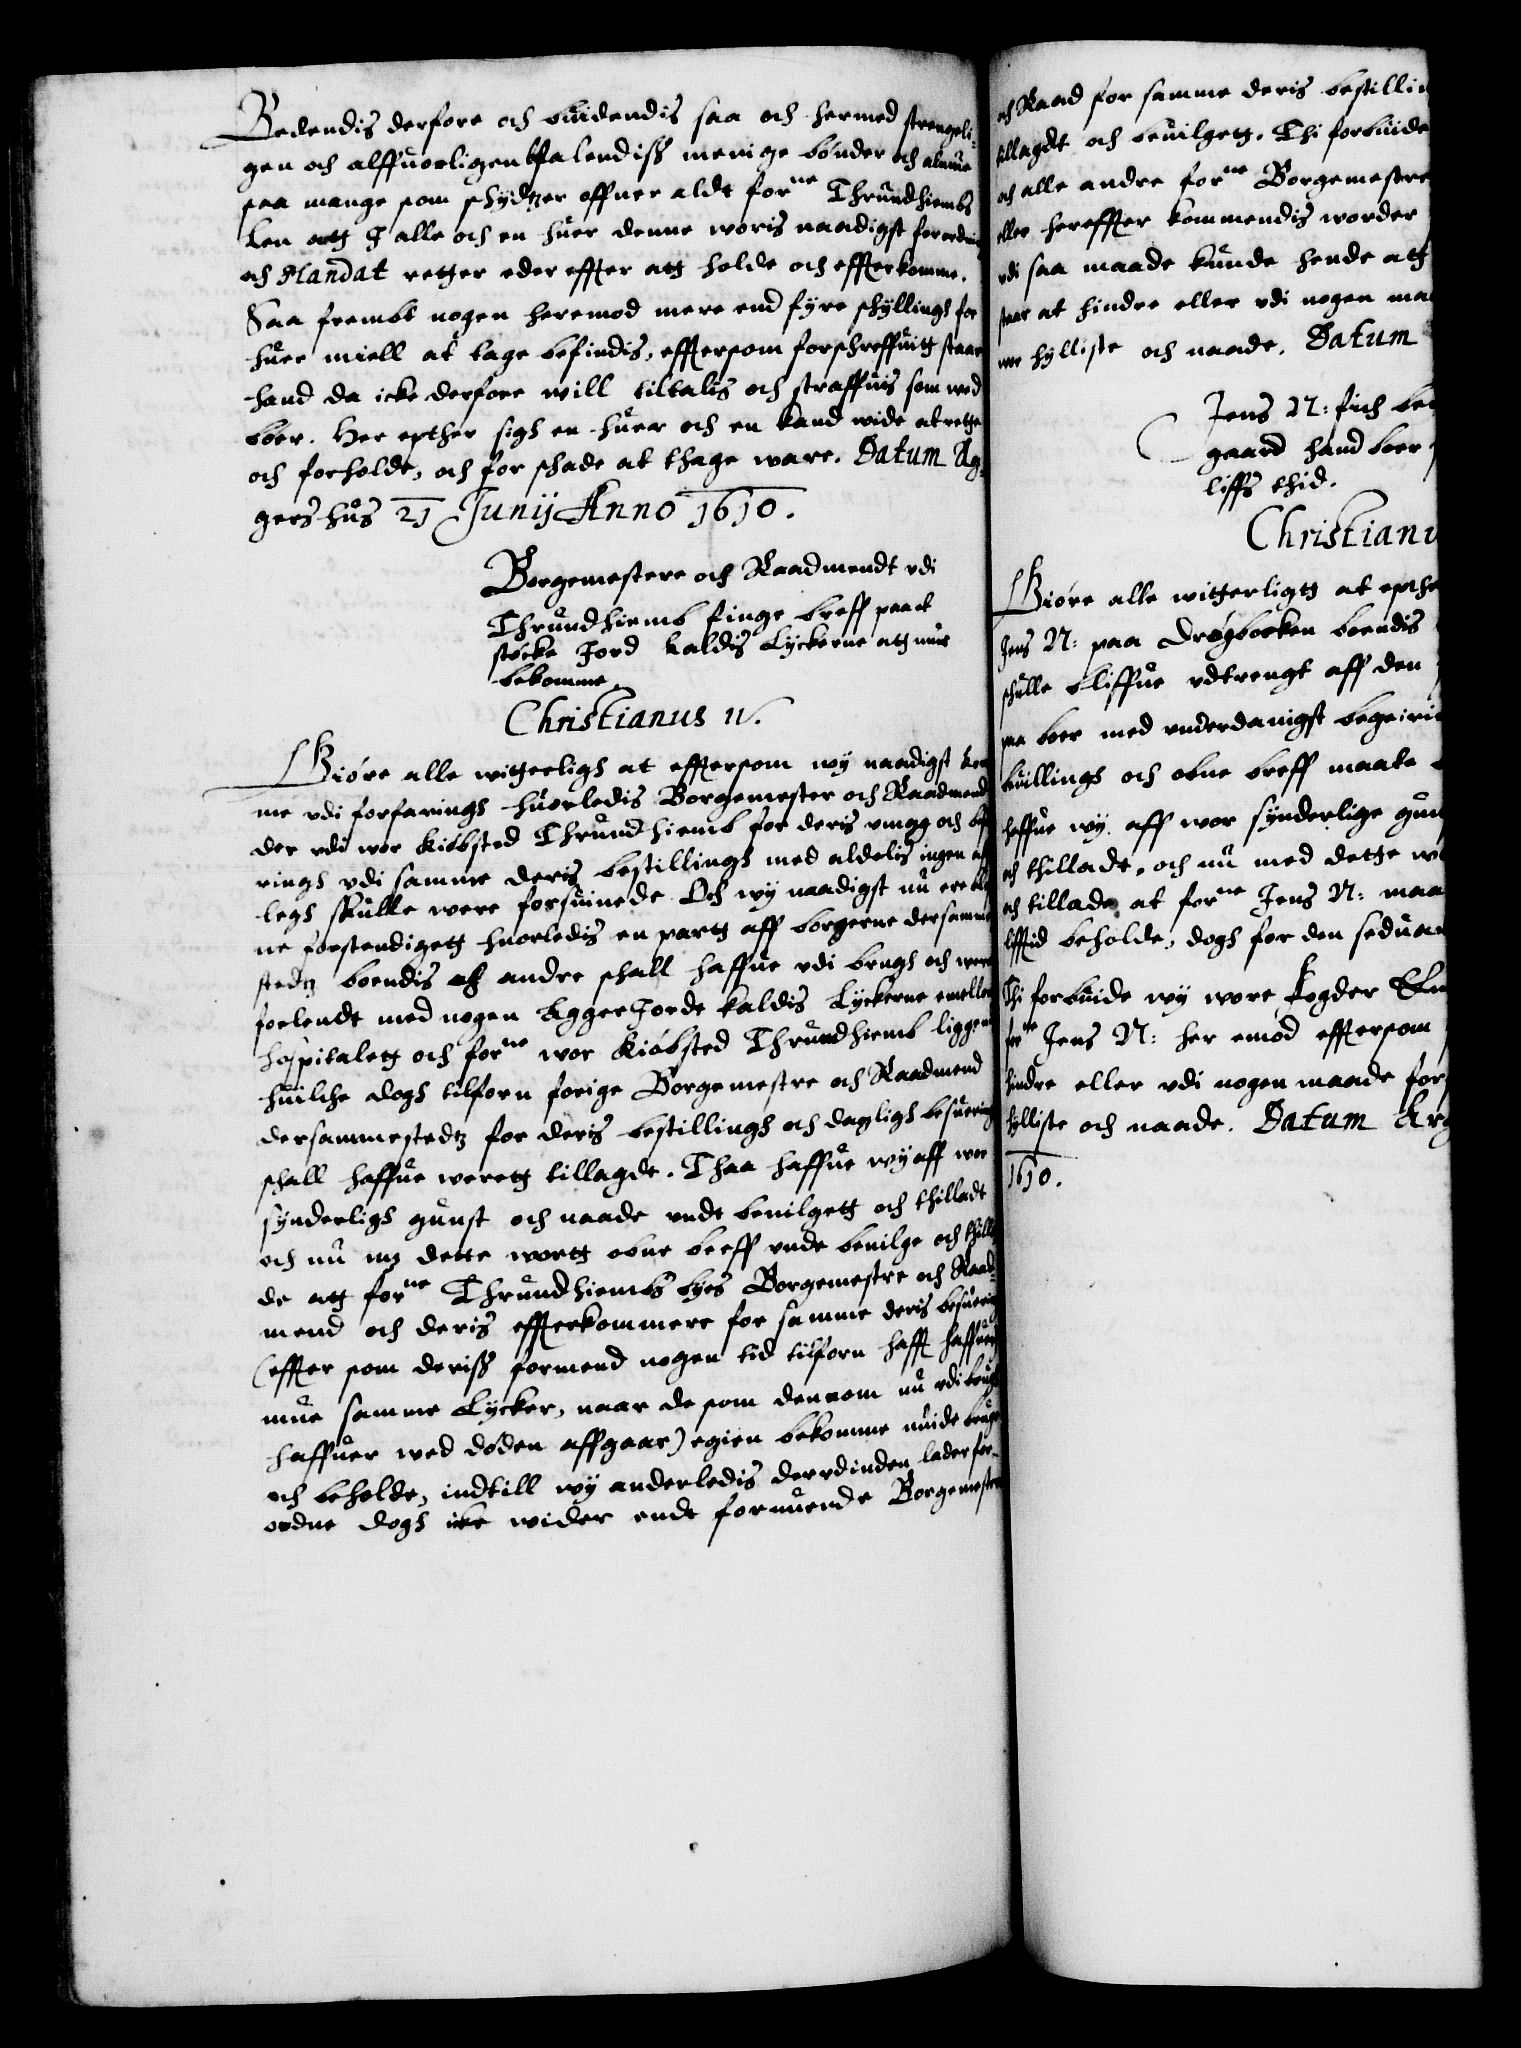 Bedendis derfore och biudendis saa och hermed strengeli-
gen och alffuorligen befalendiss menige bønder och almue
saa mange som schydtzer offuer aldt forne Thrundhiembs
Len att I alle och en huer denne woris naadigst forordni
och Mandat retter eder effter att holde och effterkomme.
Saa frembt nogen heremod mere end fyre schyllings for
huer miell at tage befindis, effttersom forschreffuitt staar
hand da icke derfore will tiltalis och straffuis som wed
bøer. Her epther sigh en huer och en kand wide at rette
och forholde, och for schade at thage ware. Datum Ag-
gershus 21 Junij Anno 1610.
Borgemestere och Raadmendt vdi
Thrundhiemb finge breff paa et
støcke Jord kaldis Lyckerne att mue
bekomme.
Christianus 4.
Giøre alle witterligh at efftersom wy naadigst kom
me vdi forfaringh huorledis Borgemester och Raadmend
der vdi wor Kiøbsted Thrundhiemb for deris vmag och besu
ringh vdi samme deris bestillingh med aldelis ingen aff
legh skulle were forsuinede. Och wy naadigst nu ere ble
ne forstendigett huorledis en partt aff borgerne dersamme
stedtz boendis och andre schall haffue vdi brugh och were
forlendt med nogen Agger Jorde kaldis Lyckerne emellem
hospitalett och forne wor Kiøbsted Thrundhiemb liggend
huilche dogh tilforn forige Borgemestre och Raadmend
dersammestedtz for deris bestillingh och dagligh besuering
schall haffue werett tillagde. Thaa haffue wy aff wor
synderligh gunst och naade undt beuilgett och thilladt
och nu mz dette wortt obne breff unde beuilge och thilla
de att forne Thrundhiembs byes Borgemestre och Raad-
mend och deris effterkommere for samme deris besuering
(effter som deriss formend nogen tid tilforn hafft haffuer
mue samme Lycker, naar de som dennom nu vdi brugh
haffuer wed døden affgaar) egien bekomme nuide bruge
och beholde, indtill wy anderledis der vdinden lader for-
ordne dogh icke wider endt forneuende Borgemestre
och Raad for samme deris bestillin
tillagdt och beuilgett. Thi forbiude
och alle andre forne Borgemestre
eller hereffter kommendis worder
vdi saa maade kunde hende att
staar at hindre eller vdi nogen ma
wor hylliste och naade. Datum
Jens N: fich be
gaard hand boer
liffs thid.
Christianu
Giøre alle witterligtt at epthe
Jens N: paa Drøgbocken boendis
schulle bliffue vdtrengt aff den
paa boer med underdanigst begeiri
buillingh och obne breff maate
haffue wy aff wor synderlige gun
och thilladt, och nu med dette w
och tillade at forne Jens N: maa
lifftid beholde, dogh for den seduan
Thi forbiude wy wore Fogder Em
forne Jens N: her emod efftersom
hindre eller vdi nogen maade for
hylliste och naade. Datum Ag
1610.